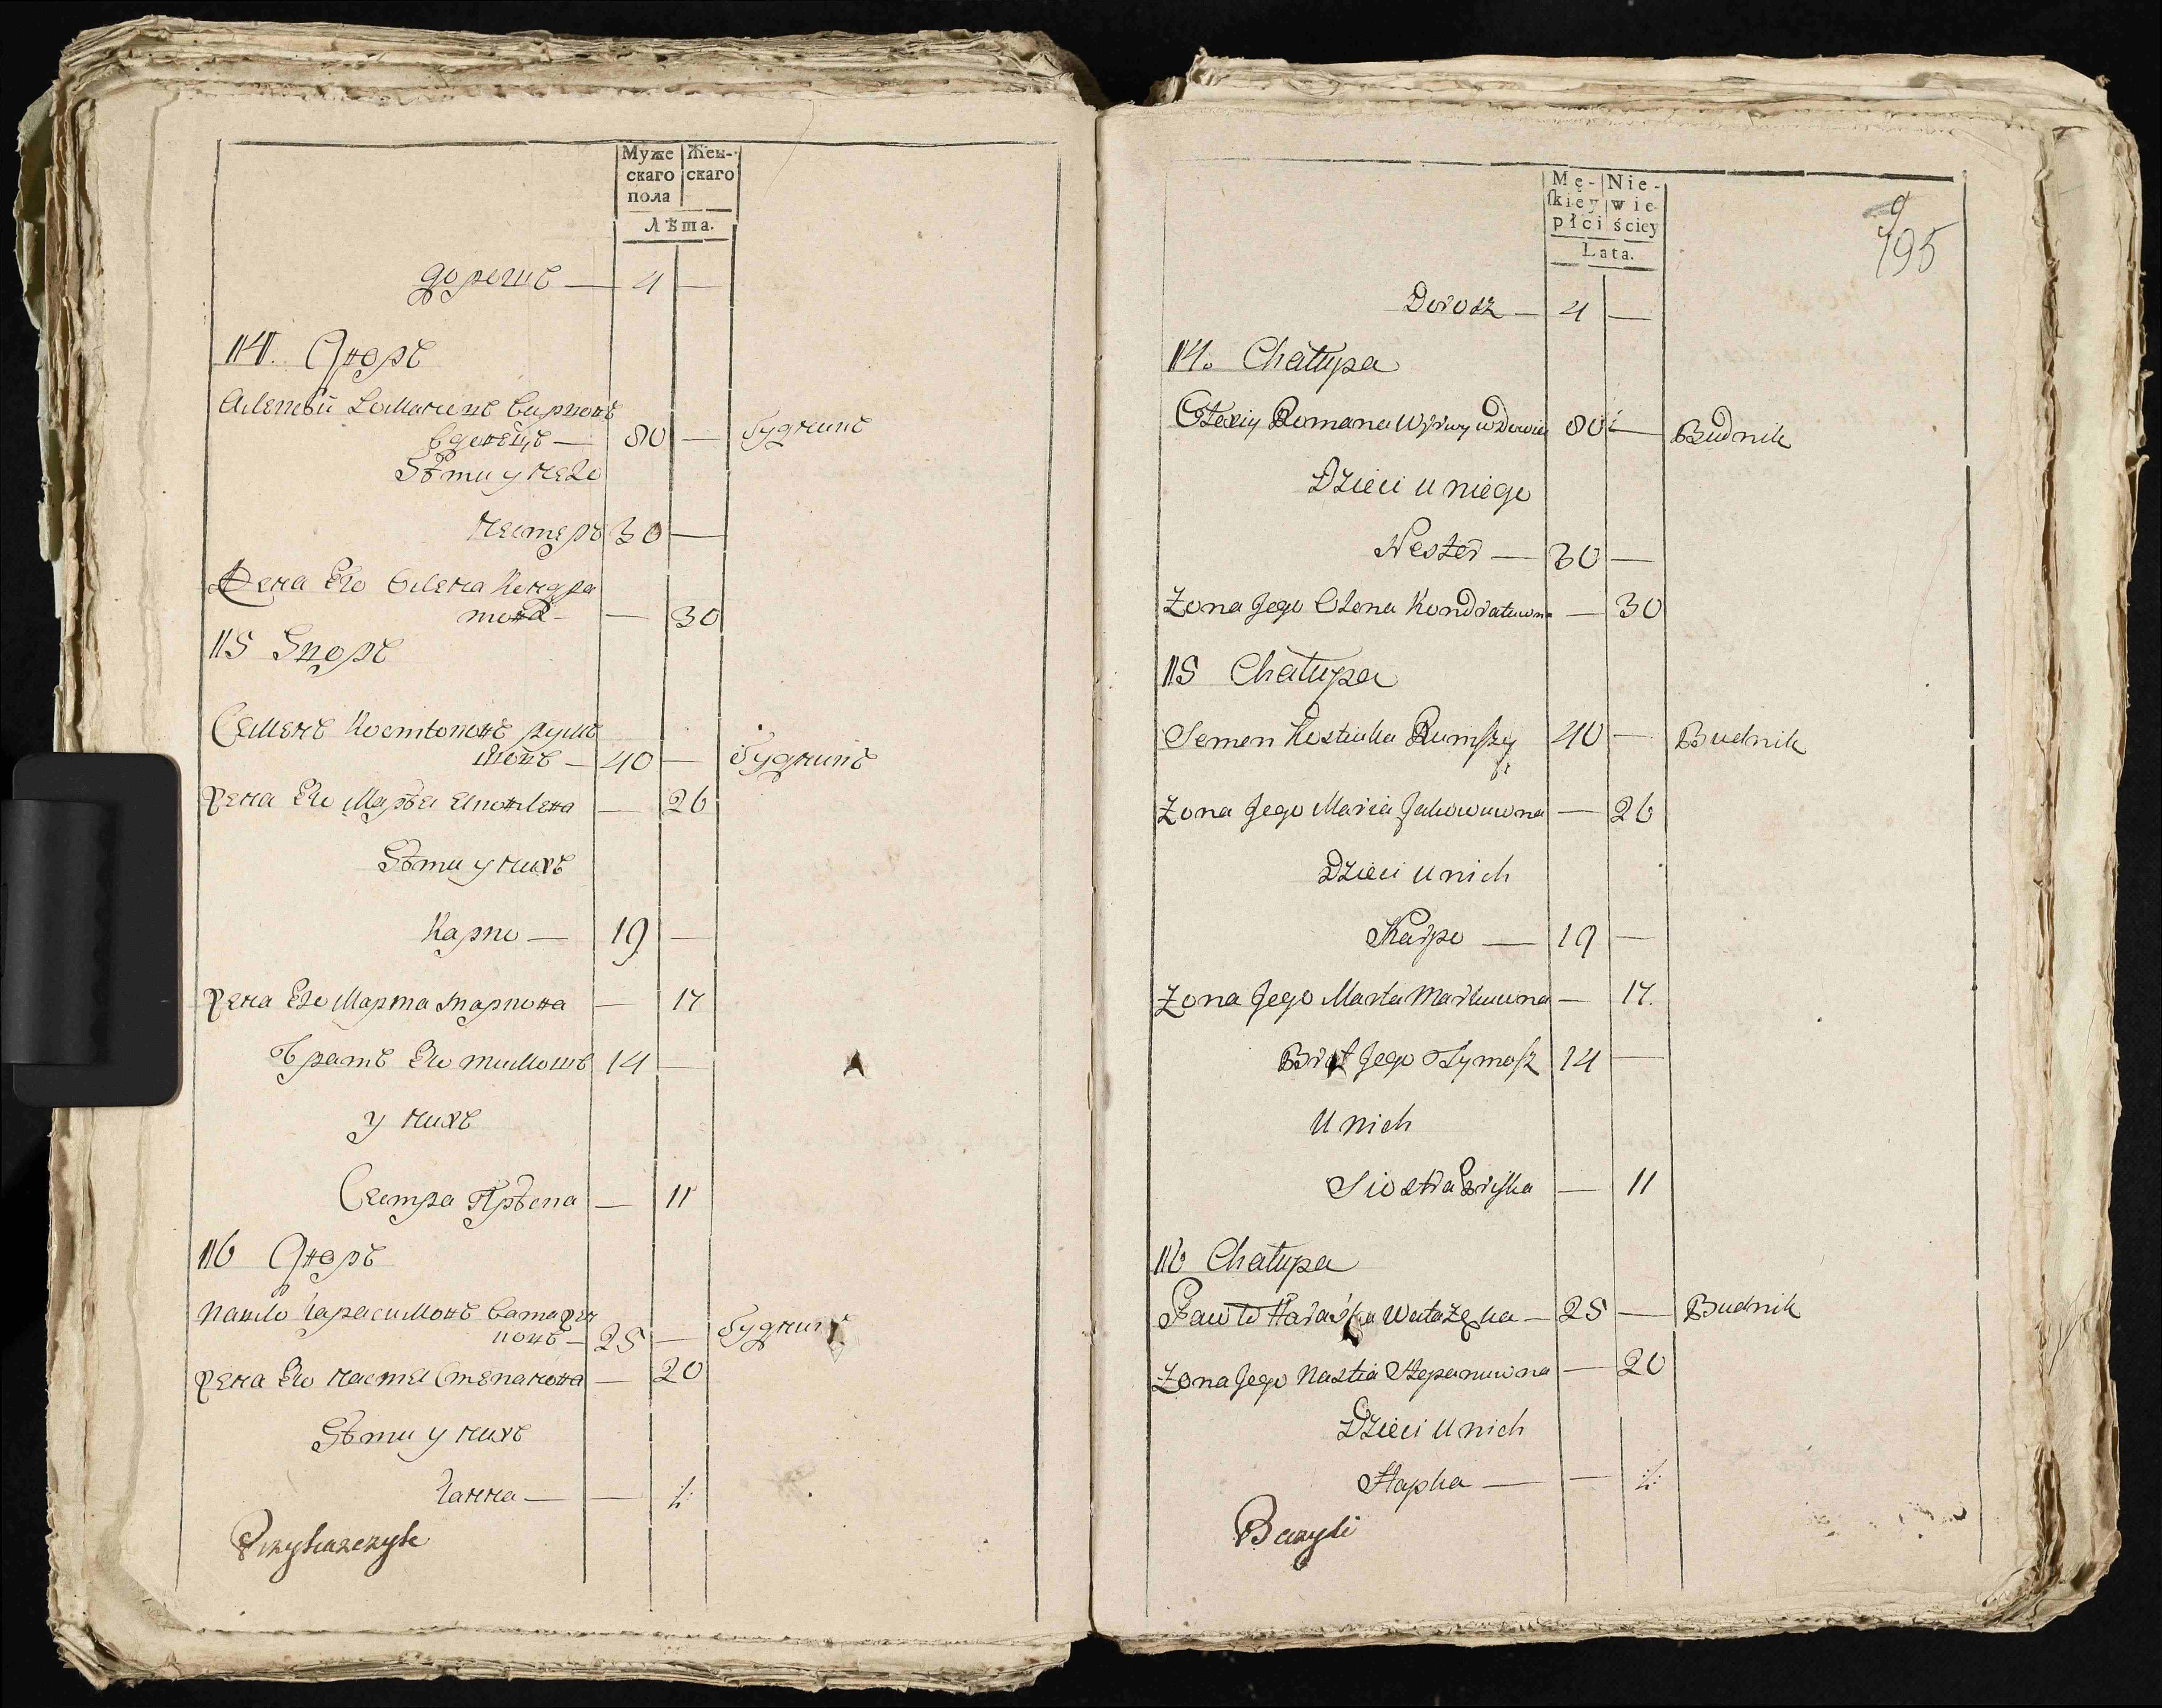 Муже
скаго
пола
Жен-
скаго
Лѣта.
дорошъ — 4 —
114. Дворъ
Алексѣй Романовъ
вдовецъ — 80 — будникъ
Дѣти у него
Нестеръ 30 —
Жена Его Олена Кондра
товна — — 30
115 Дворъ
Семенъ Костюковъ румъ
40 — будникъ
Жена Его Марья Яковлева — 26
Дѣти у нихъ
Карпо — 19 —
Жена Его Марта Маркова — 17
братъ Его тимошъ 14 —
у нихъ
Сестра — 11
116 Дворъ
Павло Гарасимовъ Ватажен
ковъ — 25 — будникъ
Жена Его настя Степановна — 20
Дѣти у нихъ
Ганна — —
Przykazczyk
Mę-
ſkiey
płci
Nie-
wie-
ściey
Lata.
9
195
Dorosz — 4 —
114. Chałupa
Olexiy Romana wdowiec 80 — Budnik
Dzieci u niego
Nester — 30 —
Żona Jego Olena Kondratuwna — 30
115 Chałupa
Semen Kostiuka Rumſzy 40 — Budnik
Żona Jego Maria Jakowuwna — 26
Dzieci u nich
Karpo — 19 —
Żona Jego Marta Markuwna — 17.
Brat Jego Tymoſz 14 —
U nich
Siostra Pryſka — 11
116 Chałupa
Pawło Haraśka Watażęka — 25 — Budnik
Żona Jego Nastia Stepanuwna — 20
Dzieci u nich
Hapka — —
Bazyli